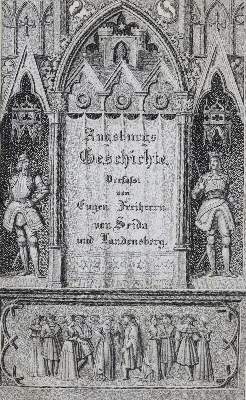 Augsburgs
Geschichte.
Verfasst
von
Eugen Freiherrn
von Seida
und Landensberg.